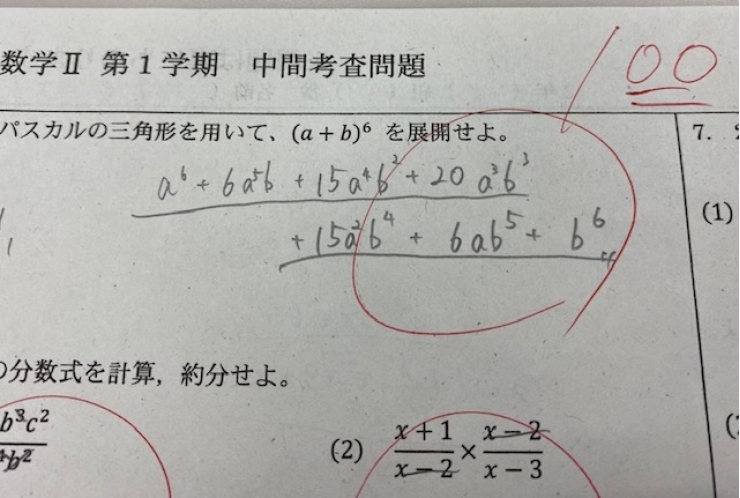 数学Ⅱ 第1学期 中間考査問題
100
パスカルの三角形を用いて、(a + b)⁶ を展開せよ。
a⁶ + 6a⁵b + 15a⁴b² + 20a³b³
+ 15a²b⁴ + 6ab⁵ + b⁶
1
7.
(1)
の分数式を計算，約分せよ。
b³c²
(2) (x + 1)/(x − 2) × (x − 2)/(x − 3)